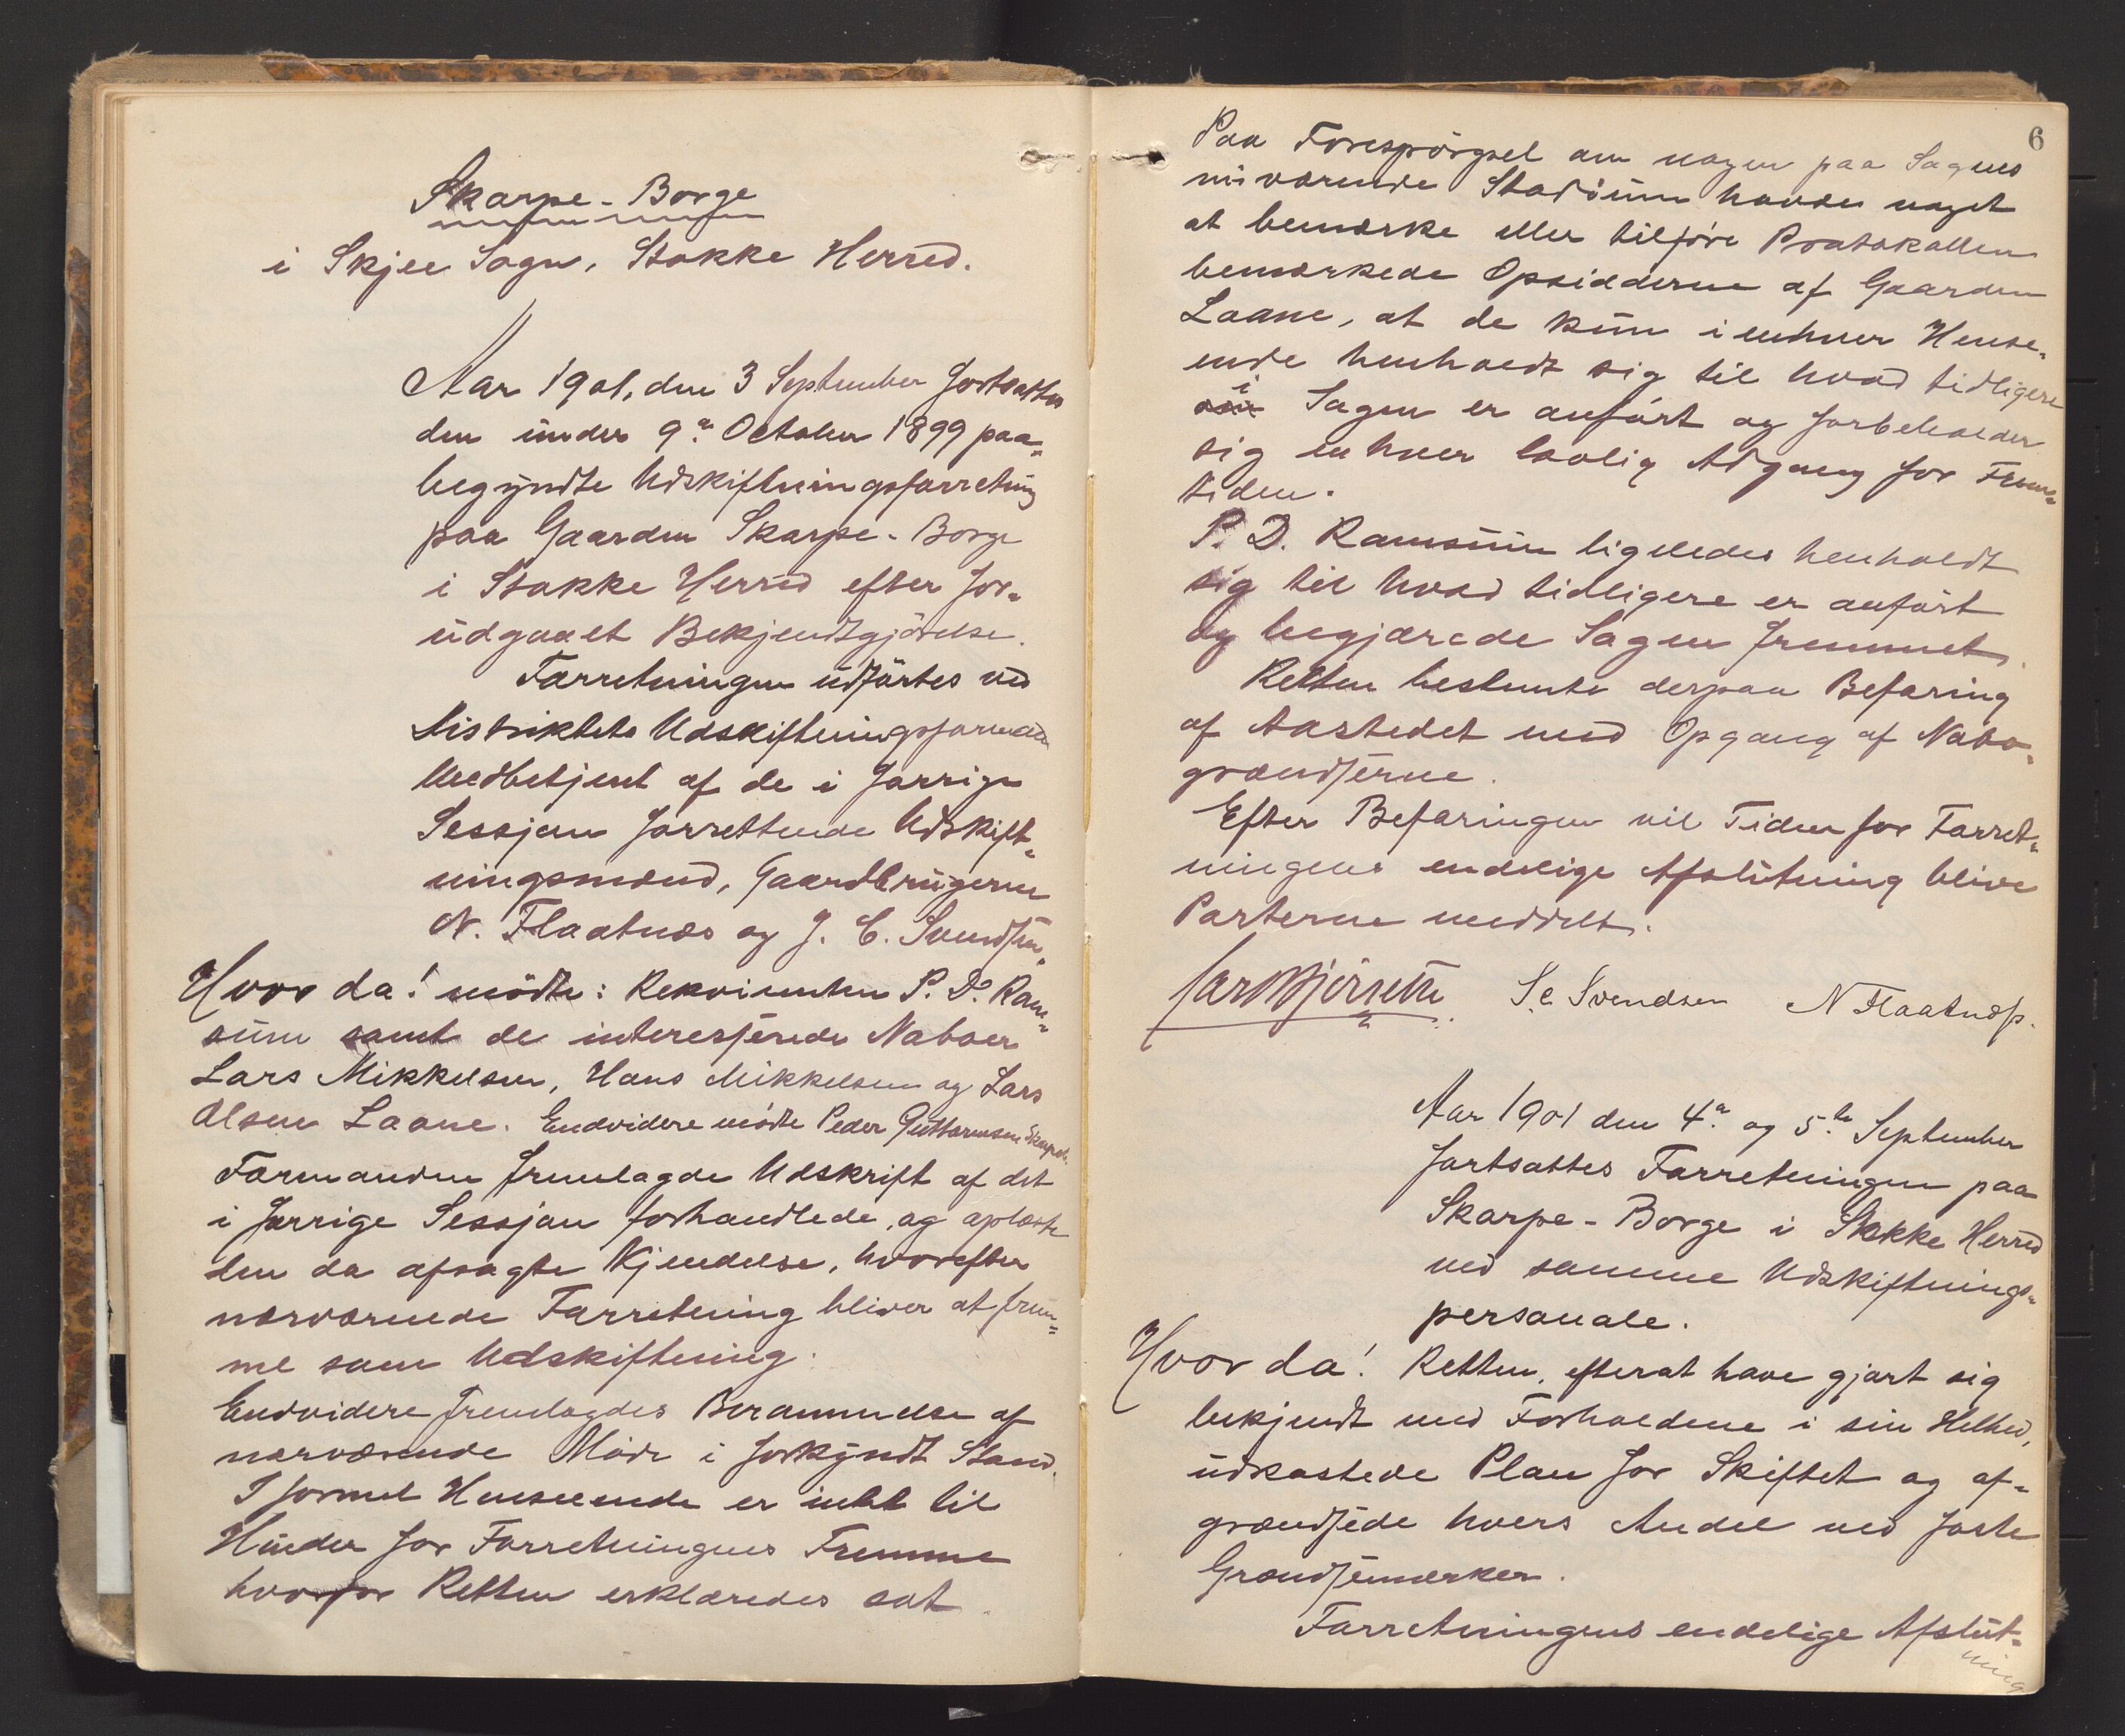 Skarpe-Borge
i Skjee Sogn, Stokke Herred.
Aar 1901, den 3 September fortsattes
den under 9de October 1899 paa-
begyndte Udskiftningsforretning
paa Gaarden Skarpe-Borge
i Stokke Herred efter for-
udgaaet Bekjendtgjörelse.
Forretningen udförtes ved
Distriktets Udskiftningsformand
Medbetjent af de i forrige
Sessjon forrettende Udskift-
ningsmænd, Gaardbrugerne
N. Flaatnæs og J. C. Svendsen.
Hvor da! mödte: Rekvirenten P. D. Ram-
sum samt de interesserede Naboer
Lars Mikkelsen, Hans Mikkelsen og Lars
Olsen Laane. Endvidere mödte Peder Guttormsen Skarpeb.
Formanden fremlagde Udskrift af det
i forrige Sessjon forhandlede, og oplæste
den da afsagte Kjendelse, hvorefter
nærværende Forretning bliver at frem-
me som Udskiftning.
Endvidere fremlagdes Berammelse af
nærværende Möde i forkyndt Stand.
I formel Henseende er intet til
Hinder for Forretningens Fremme
hvorfor Retten erklæredes sat.
6
Paa Forespörgsel om nogen paa Sagens
nuværende Stadium havde noget
at bemærke eller tilföre Protokollen
bemærkede Opsidderne af Gaarden
Laane, at de kun i enhver Hense-
ende henholdt sig til hvad tidligere
i Sagen er anfört og forbeholder
sig enhver lovlig Adgang for Frem-
tiden.
P. D. Ramsum ligeledes henholdt
sig til hvad tidligere er anfört
og begjærede Sagen fremmet.
Retten bestemte derpaa Befaring
af Aastedet med Opgang af Nabo-
grændserne.
Efter Befaringen vil Tiden for Forret-
ningens endelige Afslutning blive
Parterne meddelt.
J. C. Svendsen N Flaatnæs.
Aar 1901 den 4de og 5te September
fortsattes Forretningen paa
Skarpe-Borge i Stokke Herred
ved samme Udskiftnings-
personale.
Hvor da! Retten, efterat have gjort sig
bekjendt med Forholdene i sin Helhed,
udkastede Plan for Skiftet og af-
grændsede hvers Andel ved faste
Grændsemærker.
Forretningens endelige Afslut-
ning